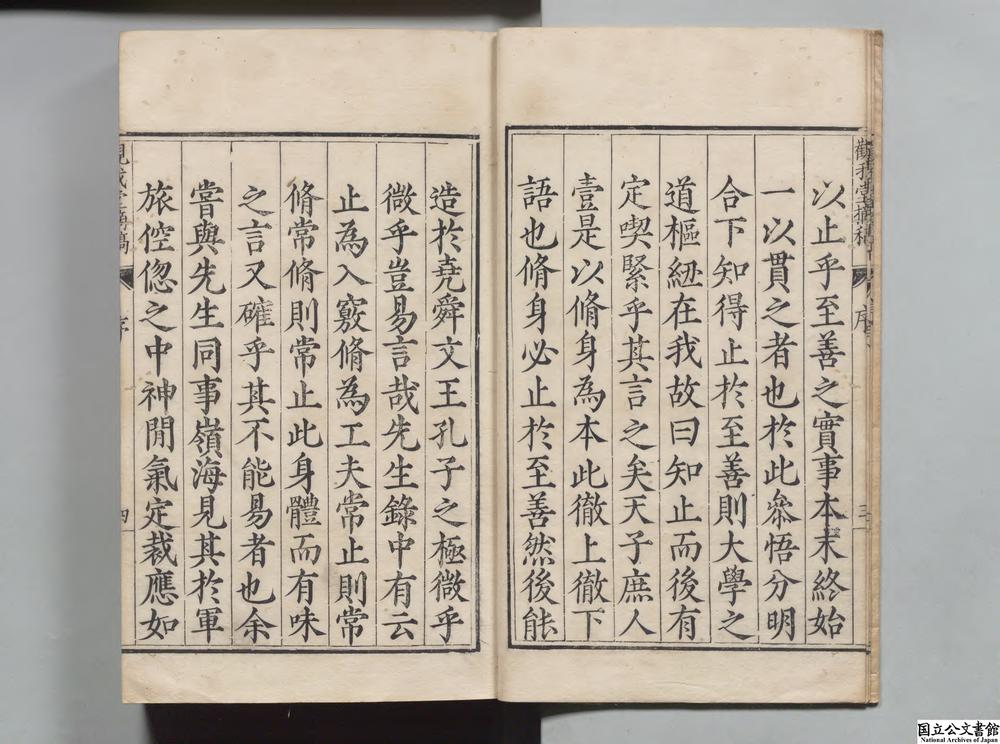 以止乎至善之實事本末終始
一以貫之者也於此叅悟分明
合下知得止於至善則大學之
道樞紐在我故曰知止而後有
定喫緊乎其言之矣天子庶人
壹是以脩身為本此徹上徹下
語也脩身必止於至善然後能
造於堯舜文王孔子之極微乎
微乎豈易言哉先生錄中有云
止為入竅脩為工夫常止則常
脩常脩則常止此身體而有味
之言又確乎其不能易者也余
嘗與先生同事嶺海見其於軍
旅倥偬之中神閒氣定裁應如
序
三
四
国立公文書館
National Archives of Japan